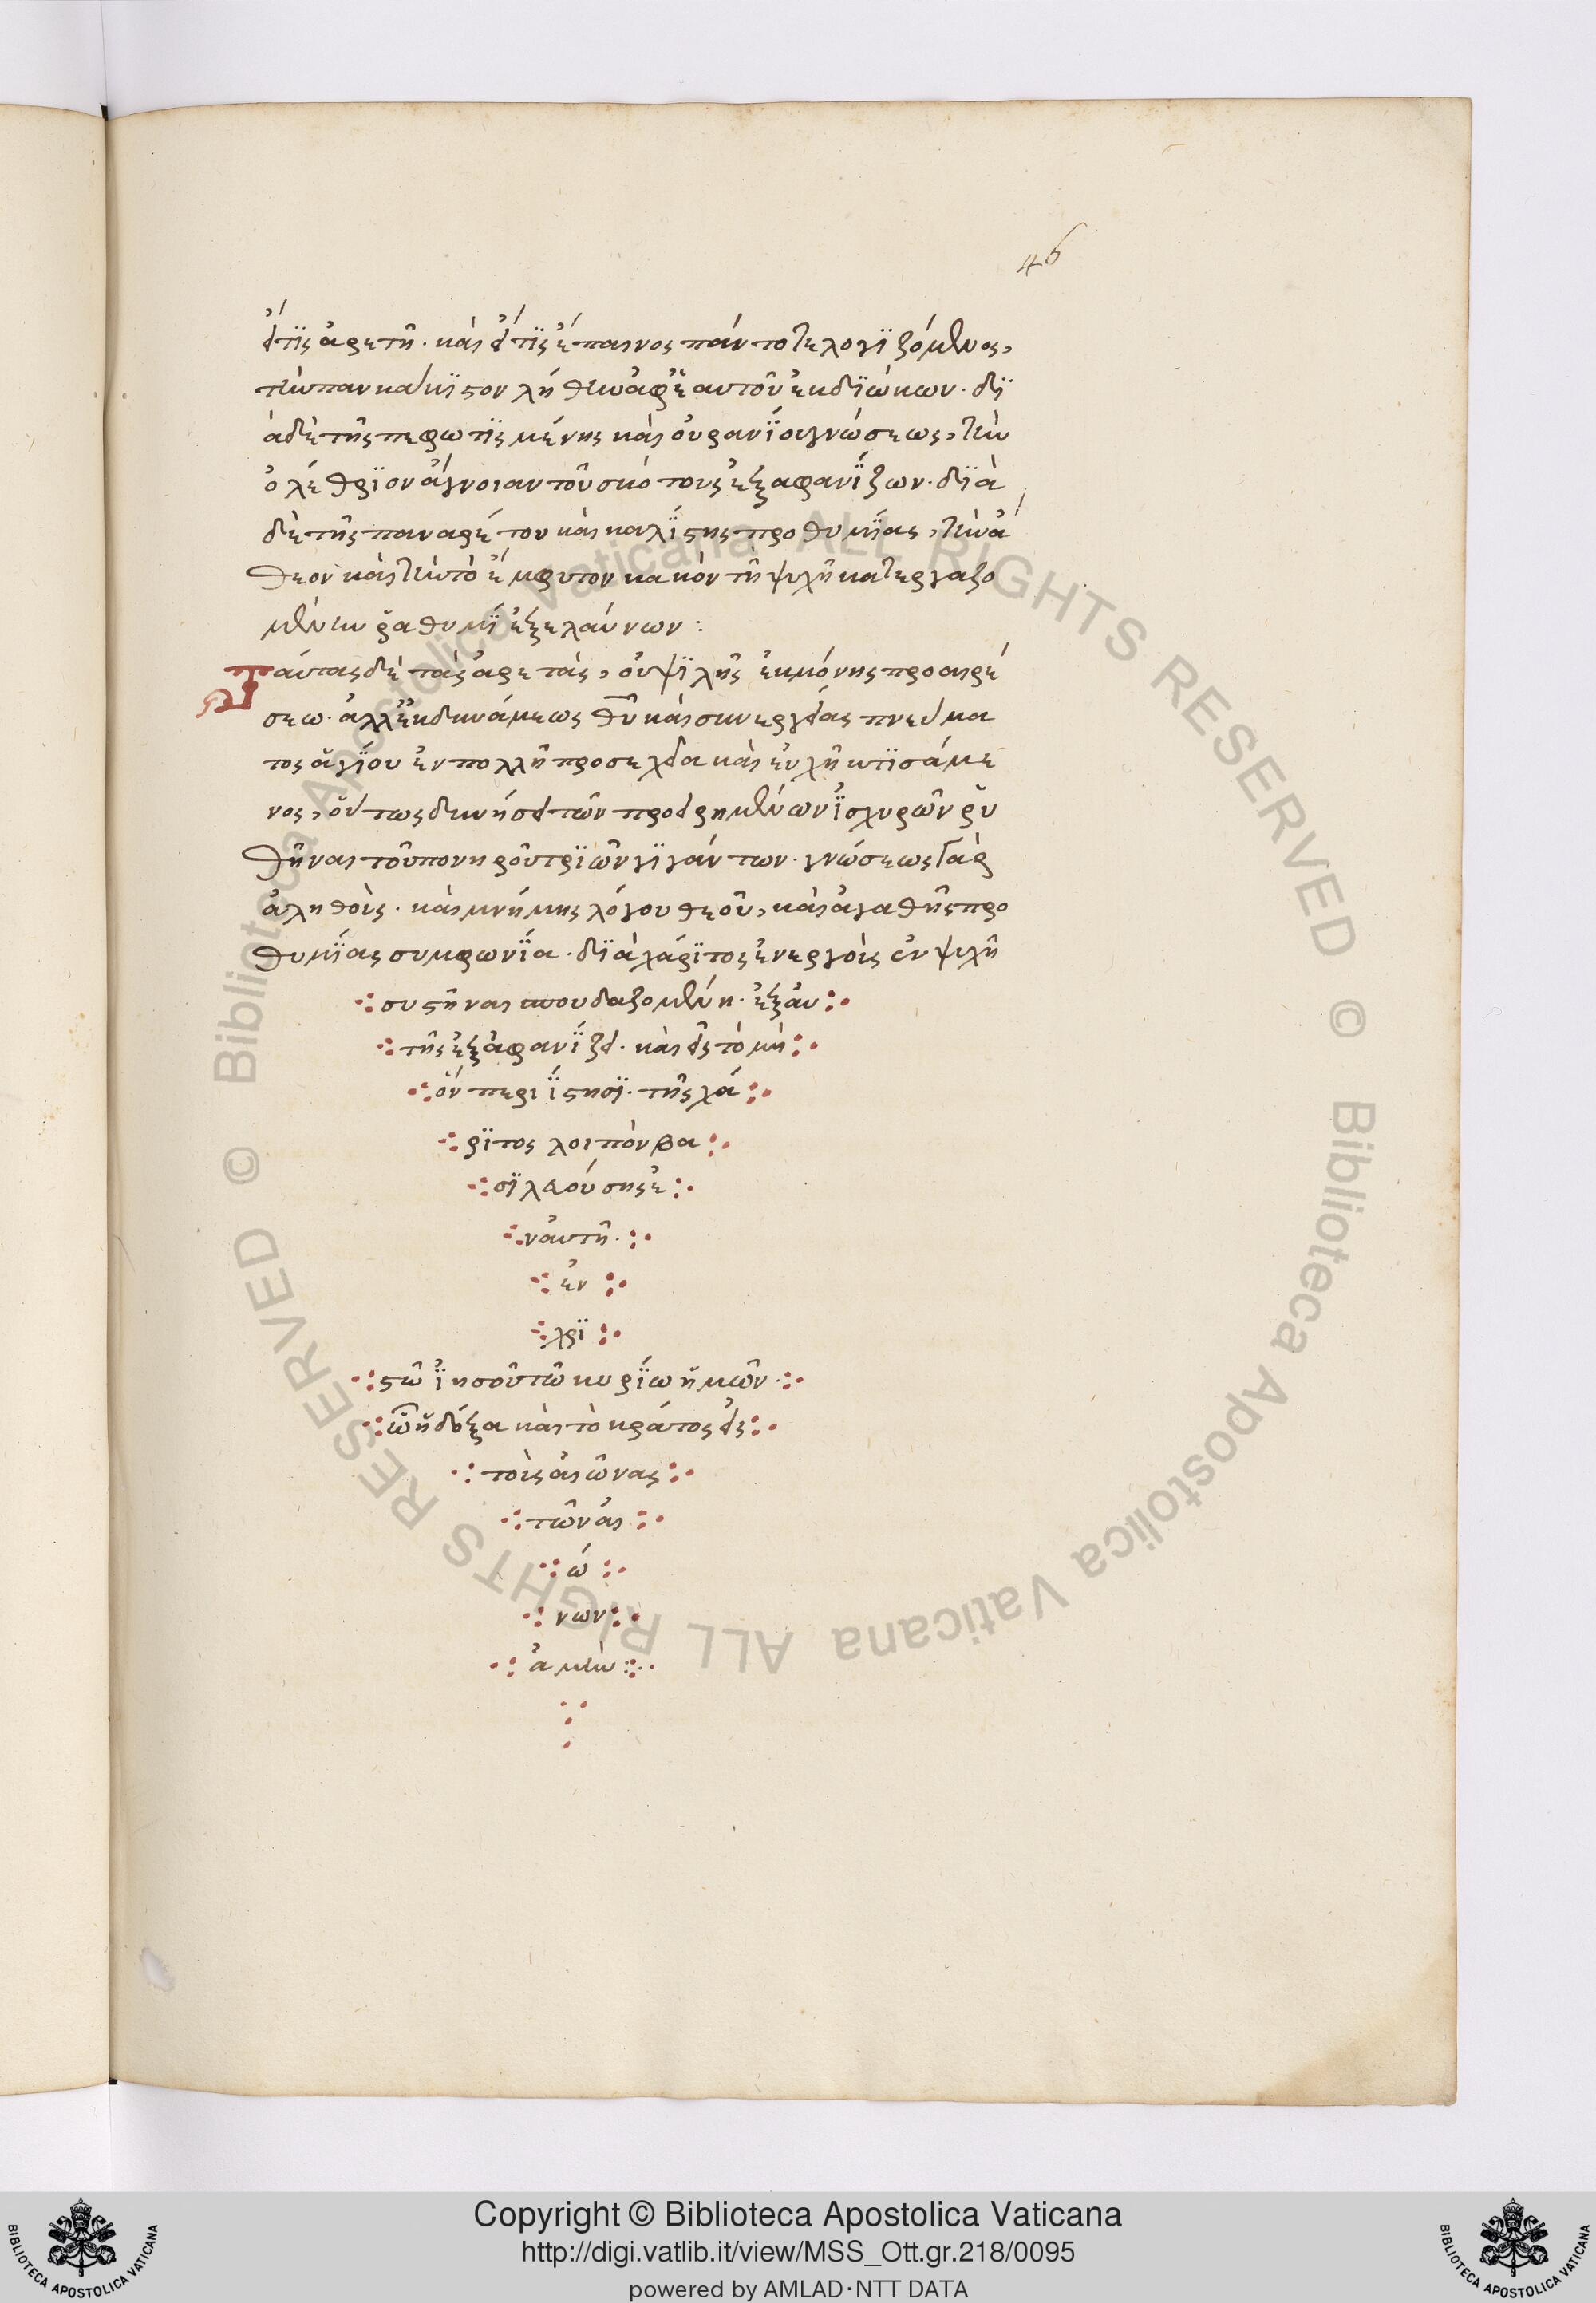 46
εἴ τϊς ἀρετὴ· καὶ εἴ τϊς ἔπαινος πάντοτε λογϊζόμενος,
τὴν παν κακϊστον λήθην ἀφ' ἑαυτοῦ ἐκδϊώκων· δϊ
ὰ δὲ τῆς πεφωτϊσμένης καὶ οὐρανΐου γνώσεως, τὴν
ὀλέθρϊον ἄγνοιαν τοῦ σκότους ἐξαφανΐζων· δϊὰ
δὲ τῆς παναρέτου καὶ καλΐστης προθυμΐας, τὴν ἄ
θεον καὶ τὴν τὸ ἔμφυτον κακὸν τῇ ψυχῇ κατεργαζο
μένην ῥαθυμϊ ἐξελαύνων:
ταύτας δὲ τὰς ἀρετὰς, οὐ ψϊλῆς ἐκ μόνης προαιρέ
σεω· ἀλλ' ἐκ δυνάμεως θῦ καὶ συνεργείας πνεύμα
τος ἁγΐου ἐν πολλῇ προσεχεία καὶ εὐχῇ κτϊσάμε
νος, οὕτως δυνήσει τῶν προειρημένων ἰσχυρῶν ῥυ
θῆναι τοῦ πονηροῦ τρϊῶν γϊγάντων· γνώσεως γὰρ
ἀληθοῦς· καὶ μνήμης λόγου θεοῦ, καὶ ἀγαθῆς προ
θυμΐας συμφωνΐα· δϊὰ χάρϊτος ἐνεργοὺς ἐν ψυχῇ
συστῆναι σπουδαζομένη· ἐξ αὐ
τῆς ἐξαφανΐζει· καὶ εἰς τὸ μὴ
ὂν περιΐστησϊ· τῆς χά
ρϊτος λοιπὸν βα
σϊλευούσης ἐ
ν αὐτῇ·
ἐν
χρϊ
στῶ ἰησοῦ τῶ κυρΐω ἡμῶν·
ὧ ἡ δόξα καὶ τὸ κράτος εἰς
τοὺς αἰῶνας
τῶν αἰ
ώ
νων
ἀμὴν
Copyright © Biblioteca Apostolica Vaticana
http://digi.vatlib.it/view/MSS_Ott.gr.218/0095
powered by AMLAD·NTT DATA
BIBLIOTECA APOSTOLICA VATICANA
BIBLIOTECA APOSTOLICA VATICANA
© Biblioteca Apostolica Vaticana ALL RIGHTS RESERVED
© Biblioteca Apostolica Vaticana ALL RIGHTS RESERVED